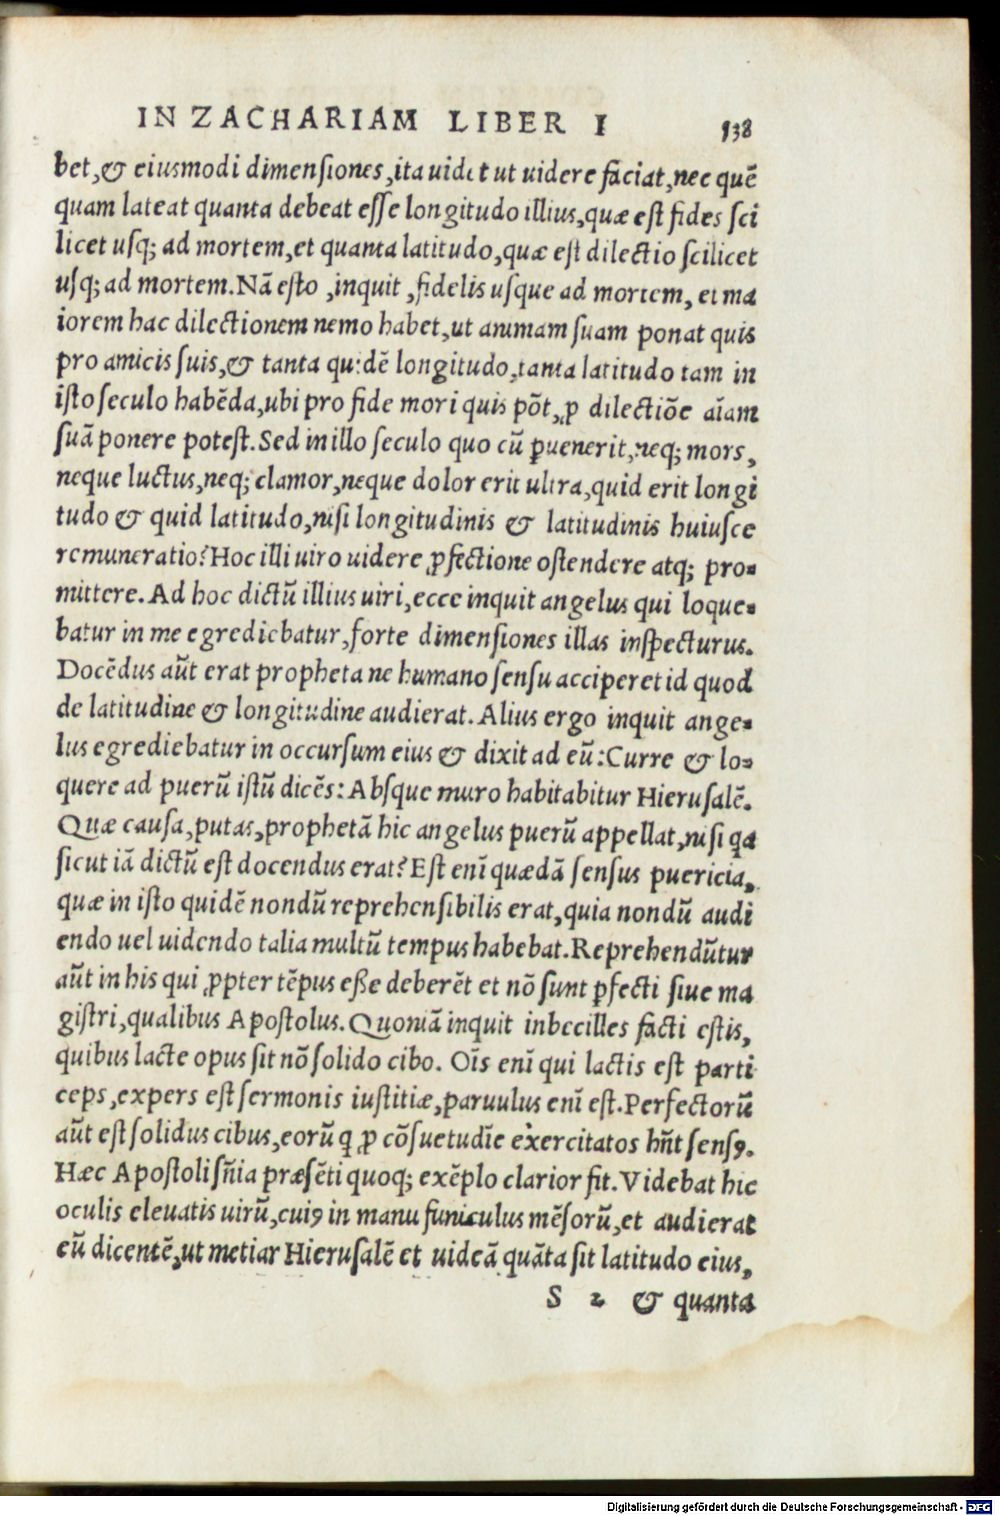 IN ZACHARIAM LIBER I 138
bet, & eiusmodi dimensiones, ita uidit ut uidere faciat, nec quē
quam lateat quanta debeat esse longitudo illius, quæ est fides sci
licet usq; ad mortem, et quanta latitudo, quæ est dilectio scilicet
usq; ad mortem. Nā esto, inquit, fidelis usque ad mortem, et ma
iorem hac dilectionem nemo habet, ut animam suam ponat quis
pro amicis suis, & tanta quidē longitudo, tanta latitudo tam in
isto seculo habēda, ubi pro fide mori quis pōt, ꝓ dilectiōe aīam
suā ponere potest. Sed in illo seculo quo cū ꝑuenerit, neq; mors,
neque luctus, neq; clamor, neque dolor erit ultra, quid erit longi
tudo & quid latitudo, nisi longitudinis & latitudinis huiusce
remuneratio? Hoc illi uiro uidere ꝓfectione ostendere atq; pro-
mittere. Ad hoc dictū illius uiri, ecce inquit angelus qui loque-
batur in me egrediebatur, forte dimensiones illas inspecturus.
Docēdus aūt erat propheta ne humano sensu acciperet id quod
de latitudine & longitudine audierat. Alius ergo inquit ange-
lus egrediebatur in occursum eius & dixit ad eū: Curre & lo-
quere ad puerū istū dicēs: Absque muro habitabitur Hierusalē.
Quæ causa, putas, prophetā hic angelus puerū appellat, nisi qa
sicut iā dictū est docendus erat? Est enī quædā sensus puericia,
quæ in isto quidē nondū reprehensibilis erat, quia nondū audi
endo uel uidendo talia multū tempus habebat. Reprehendūtur
aūt in his qui ꝓpter tēpus eße deberēt et nō sunt ꝑfecti siue ma
gistri, qualibus Apostolus. Quoniā inquit inbecilles facti estis,
quibus lacte opus sit nō solido cibo. Oīs enī qui lactis est parti
ceps, expers est sermonis iustitiæ, paruulus enī est. Perfectorū
aūt est solidus cibus, eorū q ꝓ cōsuetudīe exercitatos hn̄t sensꝰ.
Hæc Apostoli sn̄ia præsēti quoq; exēplo clarior fit. Videbat hic
oculis eleuatis uirū, cuiꝰ in manu funiculus mēsorū, et audierat
eū dicentē, ut metiar Hierusalē et uideā quāta sit latitudo eius,
S 2 & quanta
Digitalisierung gefördert durch die Deutsche Forschungsgemeinschaft - DFG